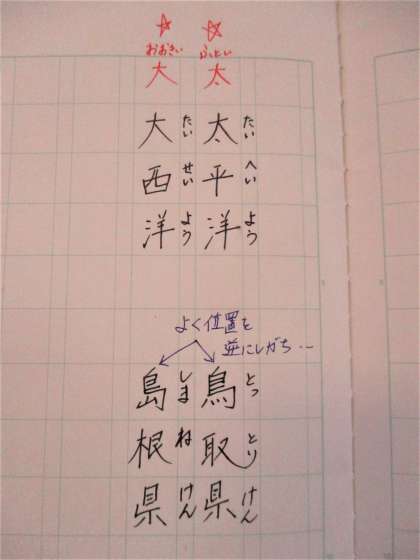 ふとい
太
おおきい
大
たいへいよう
太平洋
たいせいよう
大西洋
よく位置を
逆にしがち…
とっとりけん
鳥取県
しまねけん
島根県